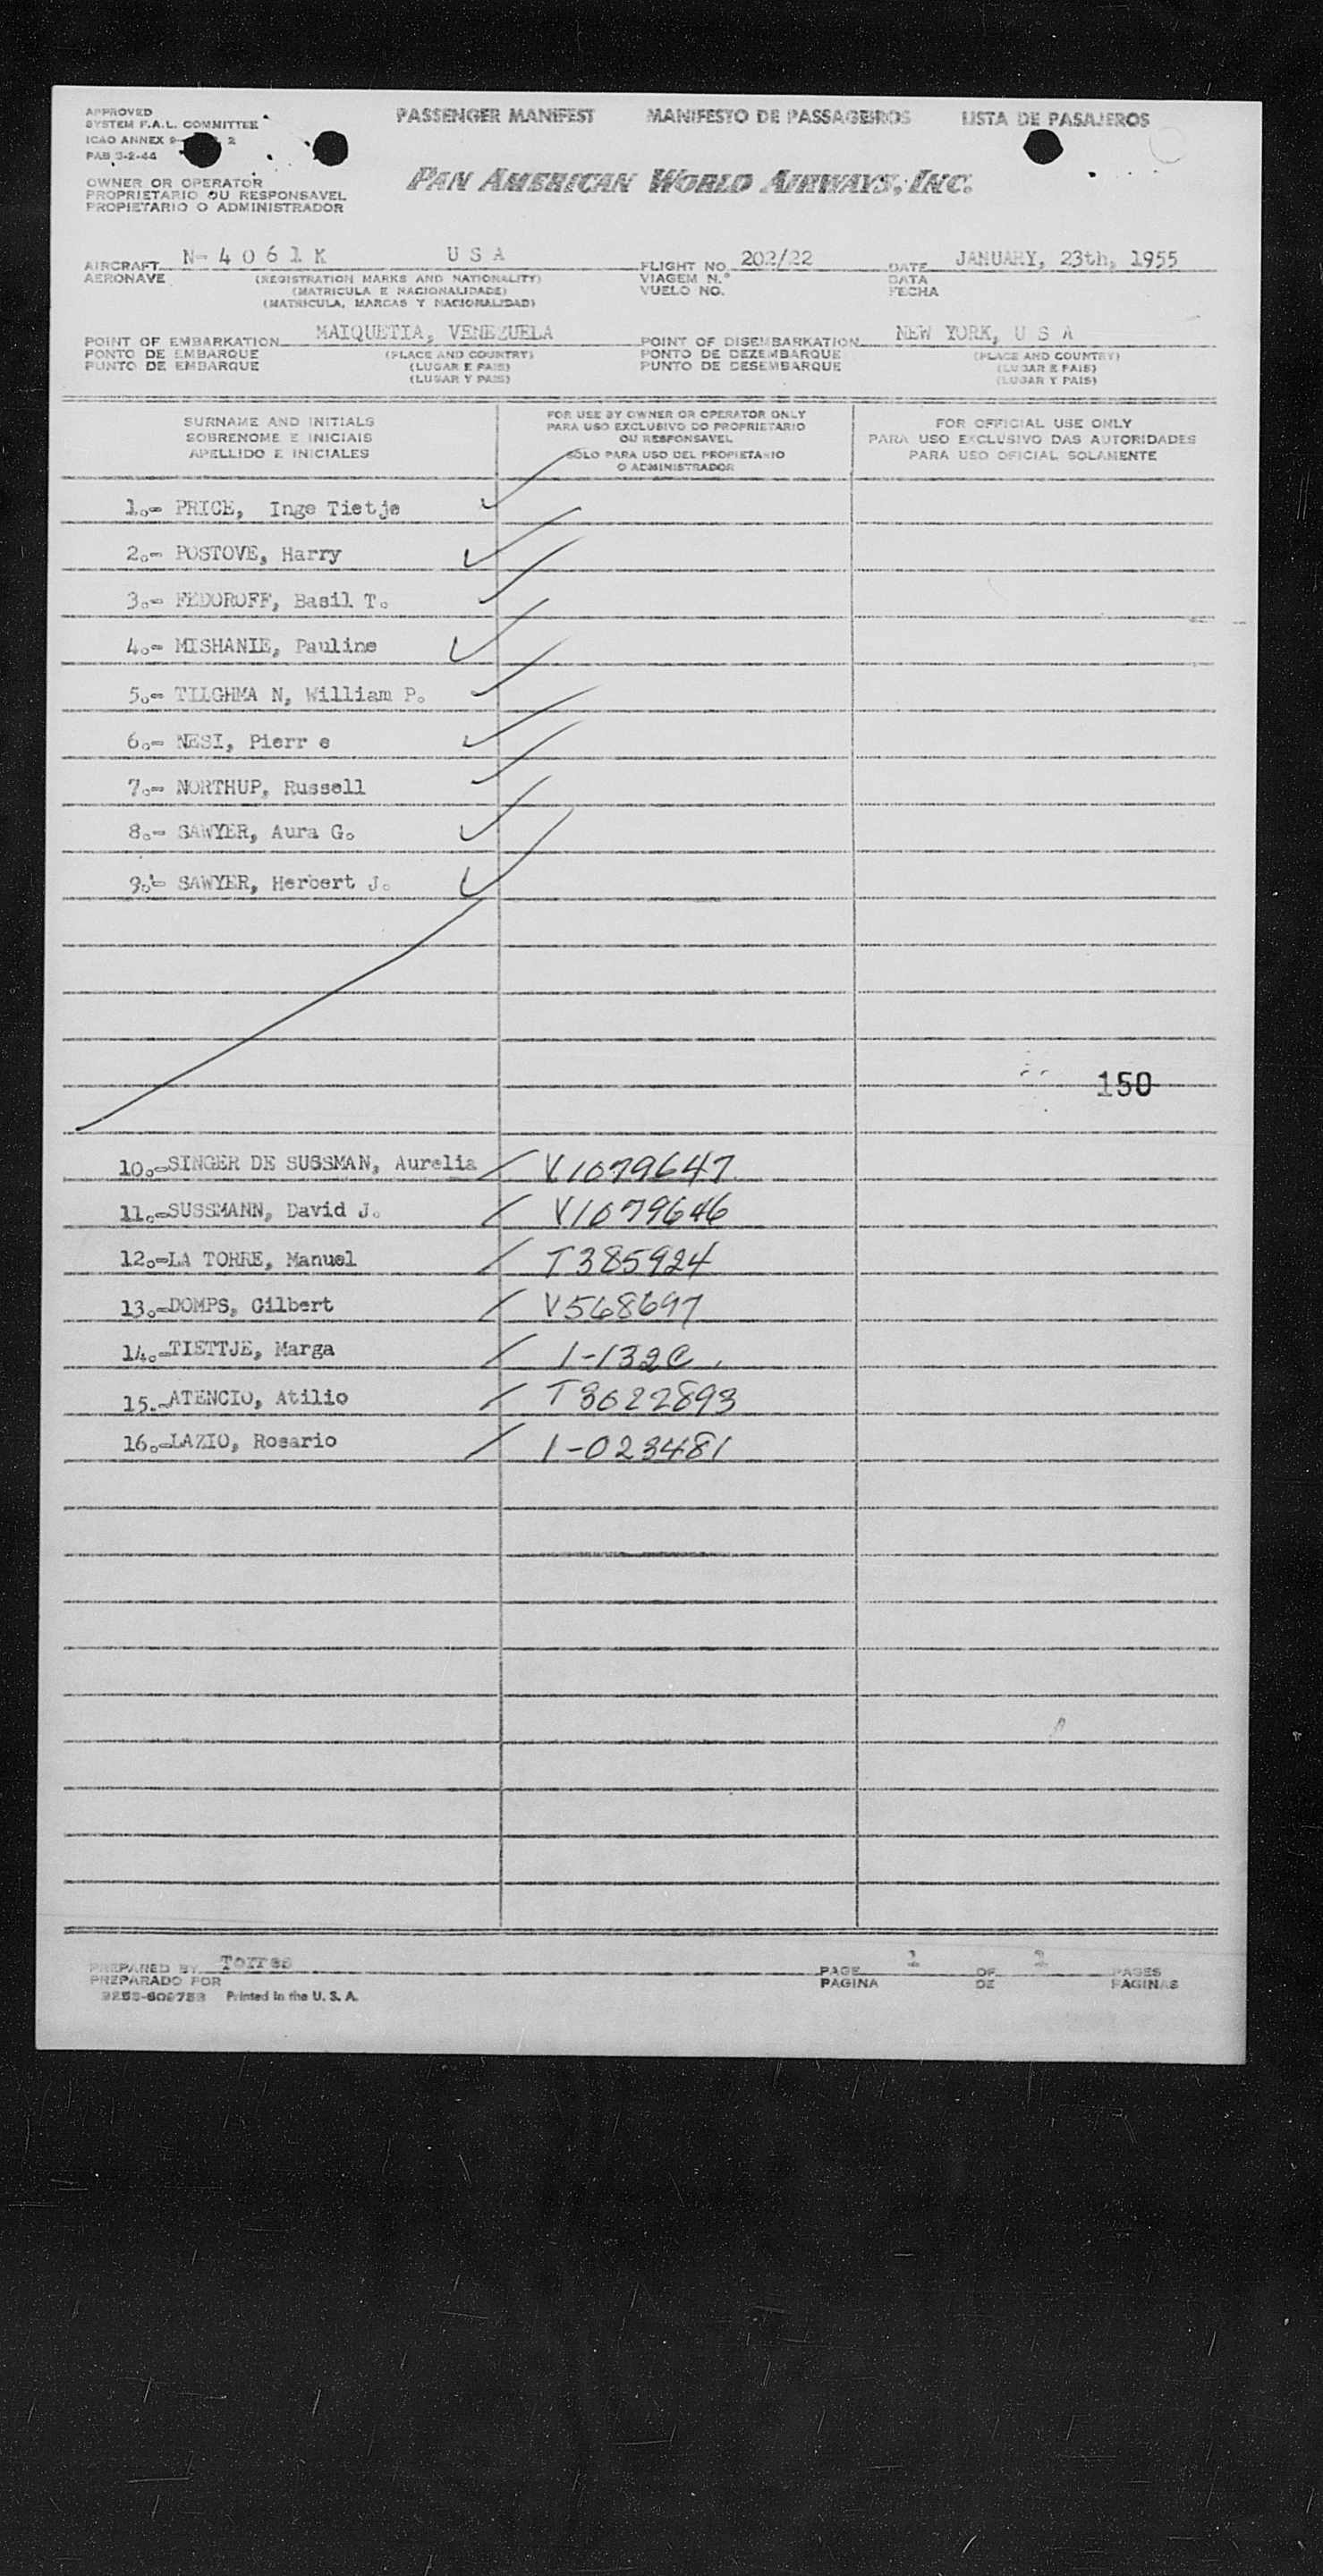 APPROVED
SYSTEM F.A.L. COMMITTEE
ICAO ANNEX 9 2
PAB 3-2-44
PASSENGER MANIFEST MANIFESTO DE PASSAGEIROS LISTA DE PASAJEROS
PAN AMERICAN WORLD AIRWAYS, INC.
OWNER OR OPERATOR
PROPRIETARIO OU RESPONSAVEL
PROPIETARIO O ADMINISTRADOR
AIRCRAFT N- 4 0 6 1 K U S A FLIGHT NO. 202/22 DATE JANUARY, 23th, 1955
AERONAVE (REGISTRATION MARKS AND NATIONALITY) VIAGEM N.º DATA
(MATRICULA E NACIONALIDADE) VUELO NO. FECHA
(MATRICULA, MARCAS Y NACIONALIDAD)
POINT OF EMBARKATION MAIQUETIA, VENEZUELA POINT OF DISEMBARKATION NEW YORK, U S A
PONTO DE EMBARQUE (PLACE AND COUNTRY) PONTO DE DEZEMBARQUE (PLACE AND COUNTRY)
PUNTO DE EMBARQUE (LUGAR E PAIS) PUNTO DE DESEMBARQUE (LUGAR E PAIS)
(LUGAR Y PAIS) (LUGAR Y PAIS)
SURNAME AND INITIALS
SOBRENOME E INICIAIS
APELLIDO E INICIALES
FOR USE BY OWNER OR OPERATOR ONLY
PARA USO EXCLUSIVO DO PROPRIETARIO
OU RESPONSAVEL
SOLO PARA USO DEL PROPIETARIO
O ADMINISTRADOR
FOR OFFICIAL USE ONLY
PARA USO EXCLUSIVO DAS AUTORIDADES
PARA USO OFICIAL SOLAMENTE
1.- PRICE, Inge Tietje
2.- POSTOVE, Harry
3.- FEDOROFF, Basil T.
4.- MISHANIE, Pauline
5.- TILGHMA N, William P.
6.- NESI, Pierr e
7.- NORTHUP, Russell
8.- SAWYER, Aura G.
9.- SAWYER, Herbert J.
150
10.-SINGER DE SUSSMAN, Aurelia V1079647
11.-SUSSMANN, David J. V1079646
12.-LA TORRE, Manuel T385924
13.-DOMPS, Gilbert V568697
14.-TIETTJE, Marga 1-132C
15.-ATENCIO, Atilio T3622893
16.-LAZIO, Rosario 1-023481
PREPARED BY Torres PAGE 1 OF 1 PAGES
PREPARADO POR PAGINA DE PAGINAS
Printed in the U. S. A.